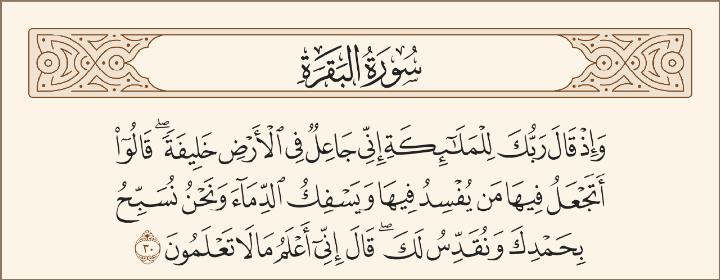 سُورَةُ البَقَرَةِ
وَإِذْ قَالَ رَبُّكَ لِلْمَلَـٰٓئِكَةِ إِنِّى جَاعِلٌ فِى ٱلْأَرْضِ خَلِيفَةً ۖ قَالُوٓا۟
أَتَجْعَلُ فِيهَا مَن يُفْسِدُ فِيهَا وَيَسْفِكُ ٱلدِّمَآءَ وَنَحْنُ نُسَبِّحُ
بِحَمْدِكَ وَنُقَدِّسُ لَكَ ۖ قَالَ إِنِّىٓ أَعْلَمُ مَا لَا تَعْلَمُونَ ٣٠